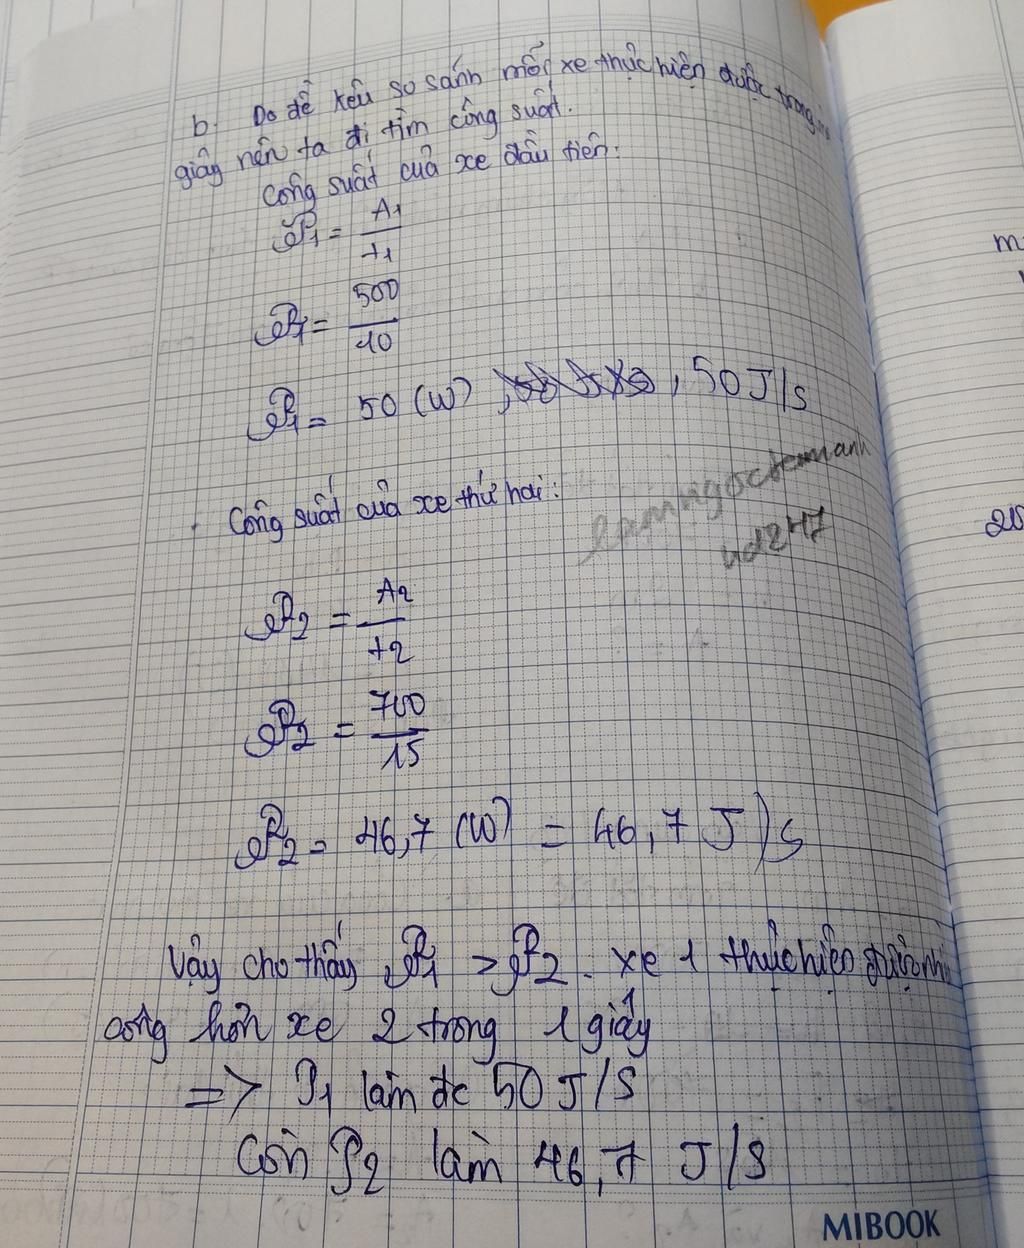 b. Do đề kêu so sánh mỗi xe thực hiện được trong
giây nên ta đi tìm công suất.
Công suất của xe đầu tiên:
P1 = A1/t1
P1 = 500/10
P1 = 50 (W) , 50 J/s
Công suất của xe thứ hai:
P2 = A2/t2
P2 = 700/15
P2 = 46,7 (W) = 46,7 J/s
Vậy cho thấy P1 > P2. xe 1 thực hiện
công hơn xe 2 trong 1 giây
=> P1 làm đc 50 J/s
Còn P2 làm 46,7 J/s
MIBOOK
m
20